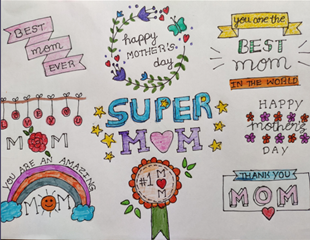 BEST
mom
EVER
happy
MOTHER'S
day
you are the
BEST
mom
IN THE WORLD
SUPER
MOM
MOM
HAPPY
mother's
DAY
YOU ARE AN AMAZING
MOM
#1 MOM
THANK YOU
MOM